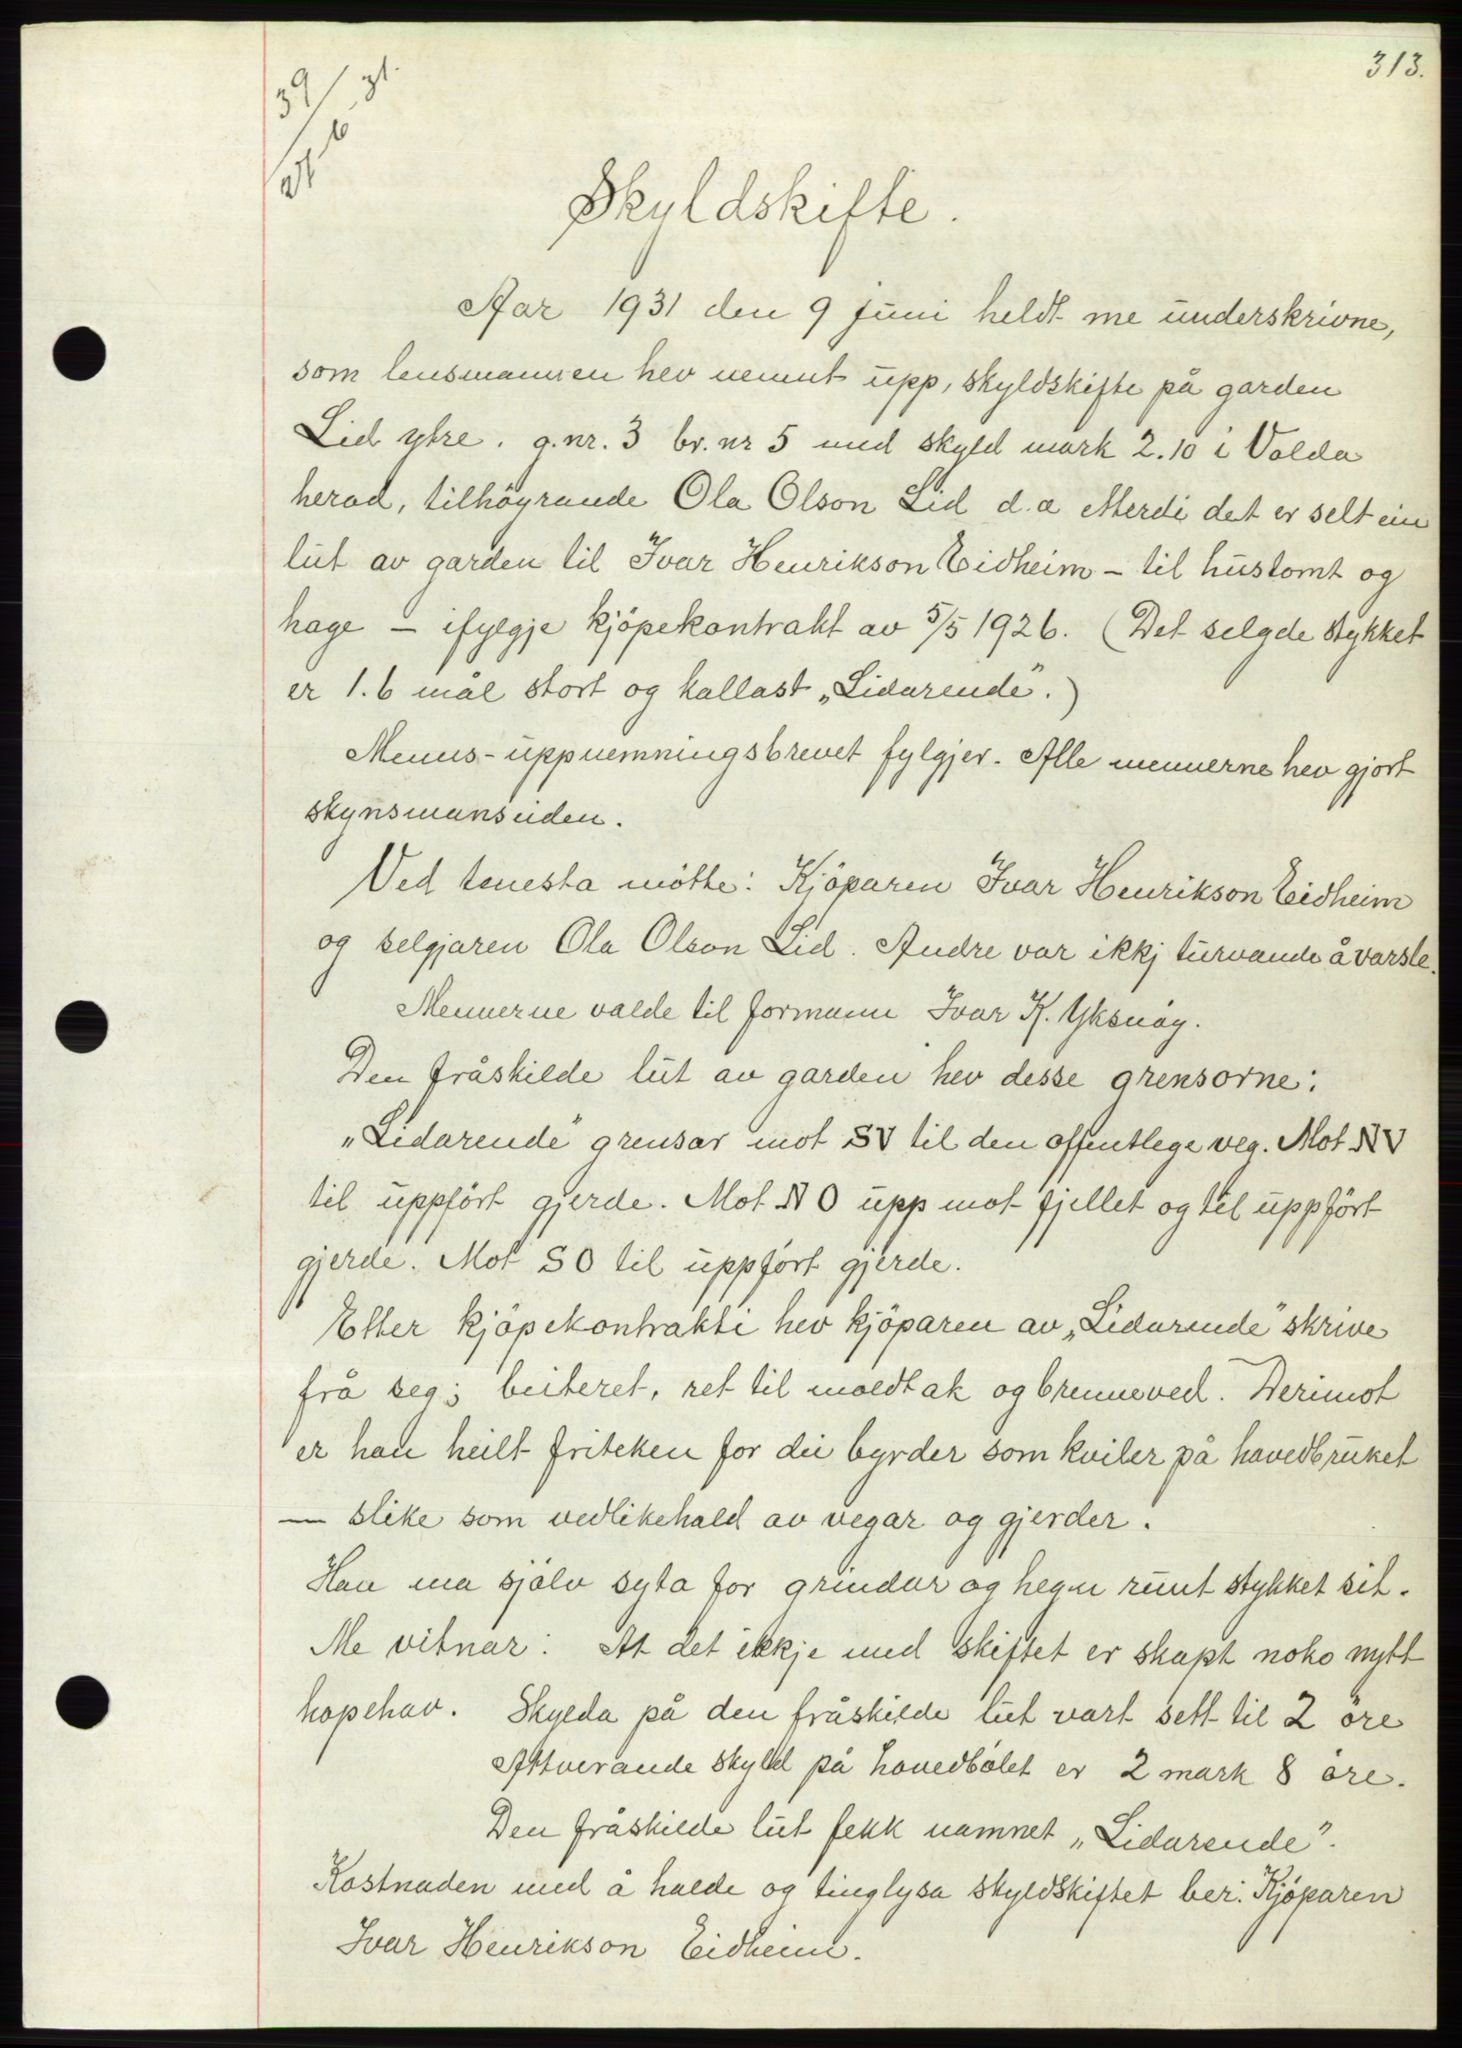 313.
Skyldskifte.
Aar 1931 den 9 juni heldt me underskrivne,
som lensmannen hev nemnt upp, skyldskifte på garden
Lid ytre. g.nr. 3 br. nr 5 med skyld mark 2.10 i Volda
herad, tilhöyrande Ola Olson Lid d.a etterdi det er selt ein
lut av garden til Ivar Henrikson Eidheim – til hustomt og
hage – ifylgje kjöpekontrakt av 5/5 1926. (Det selgde stykket
er 1.6 mål stort og kallast „Lidarende".)
Menns-uppnemningsbrevet fylgjer. Alle mennerne hev gjort
skynsmanseiden.
Ved tenesta mötte: Kjöparen Ivar Henrikson Eidheim
og selgjaren Ola Olson Lid. Andre var ikkj turvande å varsle.
Mennerne valde til formann Ivar K. Yksnöy.
Den fråskilde lut av garden hev desse grensorne:
„Lidarende" grensar mot SV til den offentlege veg. Mot NV
til uppfört gjerde. Mot NO upp mot fjellet og til uppfört
gjerde. Mot SO til uppfört gjerde.
Etter kjöpekontrakti hev kjöparen av „Lidarende" skrive
frå seg; beiteret, ret til moldtak og brenneved. Derimot
er han heilt friteken for dei byrder som kviler på hovedbruket
— slike som vedlikehald av vegar og gjerder.
Han ma sjölv syta for grindar og hegn runt stykket sit.
Me vitnar: At det ikkje med skiftet er skapt noko nytt
hopehav. Skylda på den fråskilde lut vart sett til 2 öre
Attverande skyld på hovedbölet er 2 mark 8 öre.
Den fråskilde lut fekk namnet „Lidarende".
Kostnaden med å halde og tinglysa skyldskiftet ber: Kjöparen
Ivar Henrikson Eidheim.